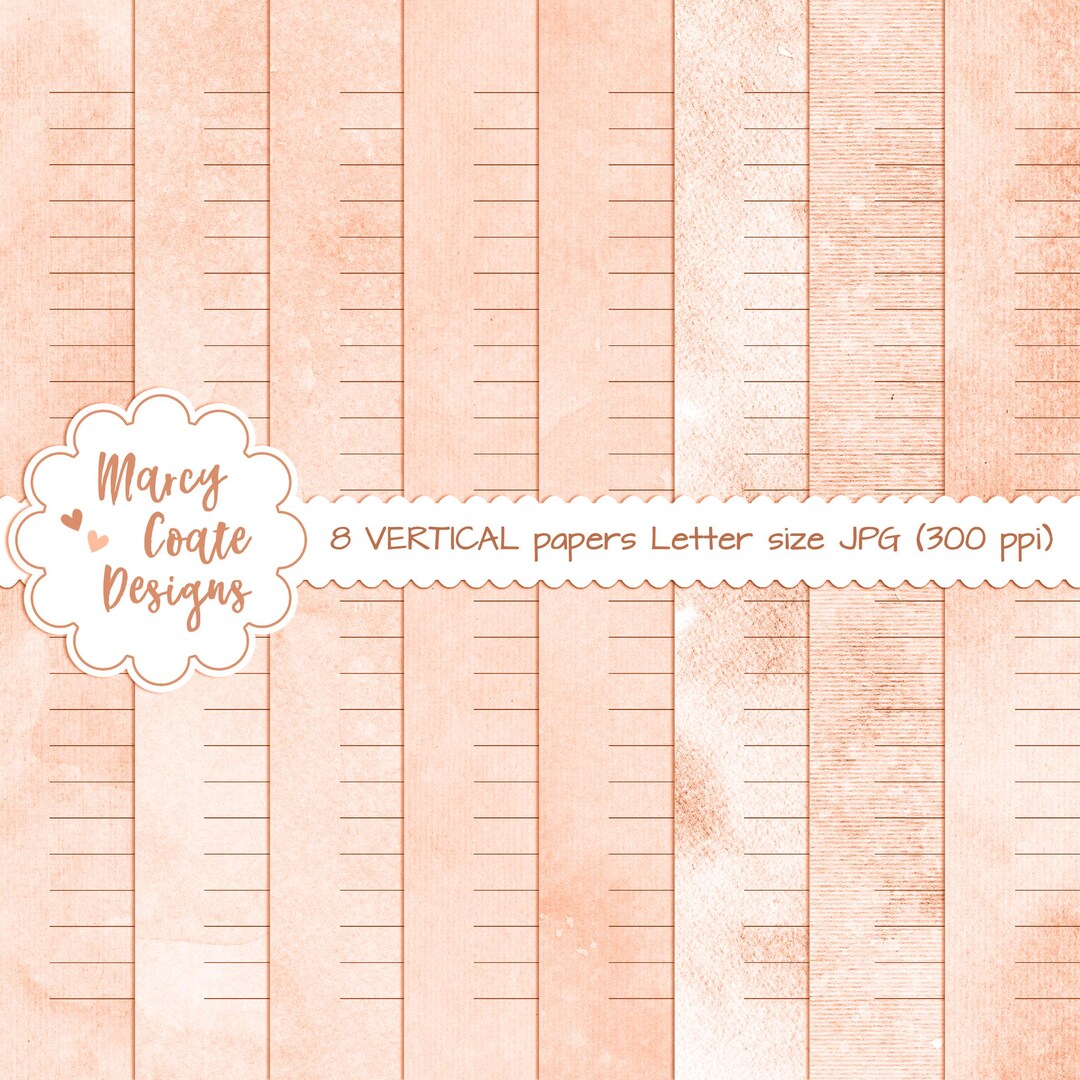 Marcy
Coate
Designs
8 VERTICAL papers Letter size JPG (300 ppi)